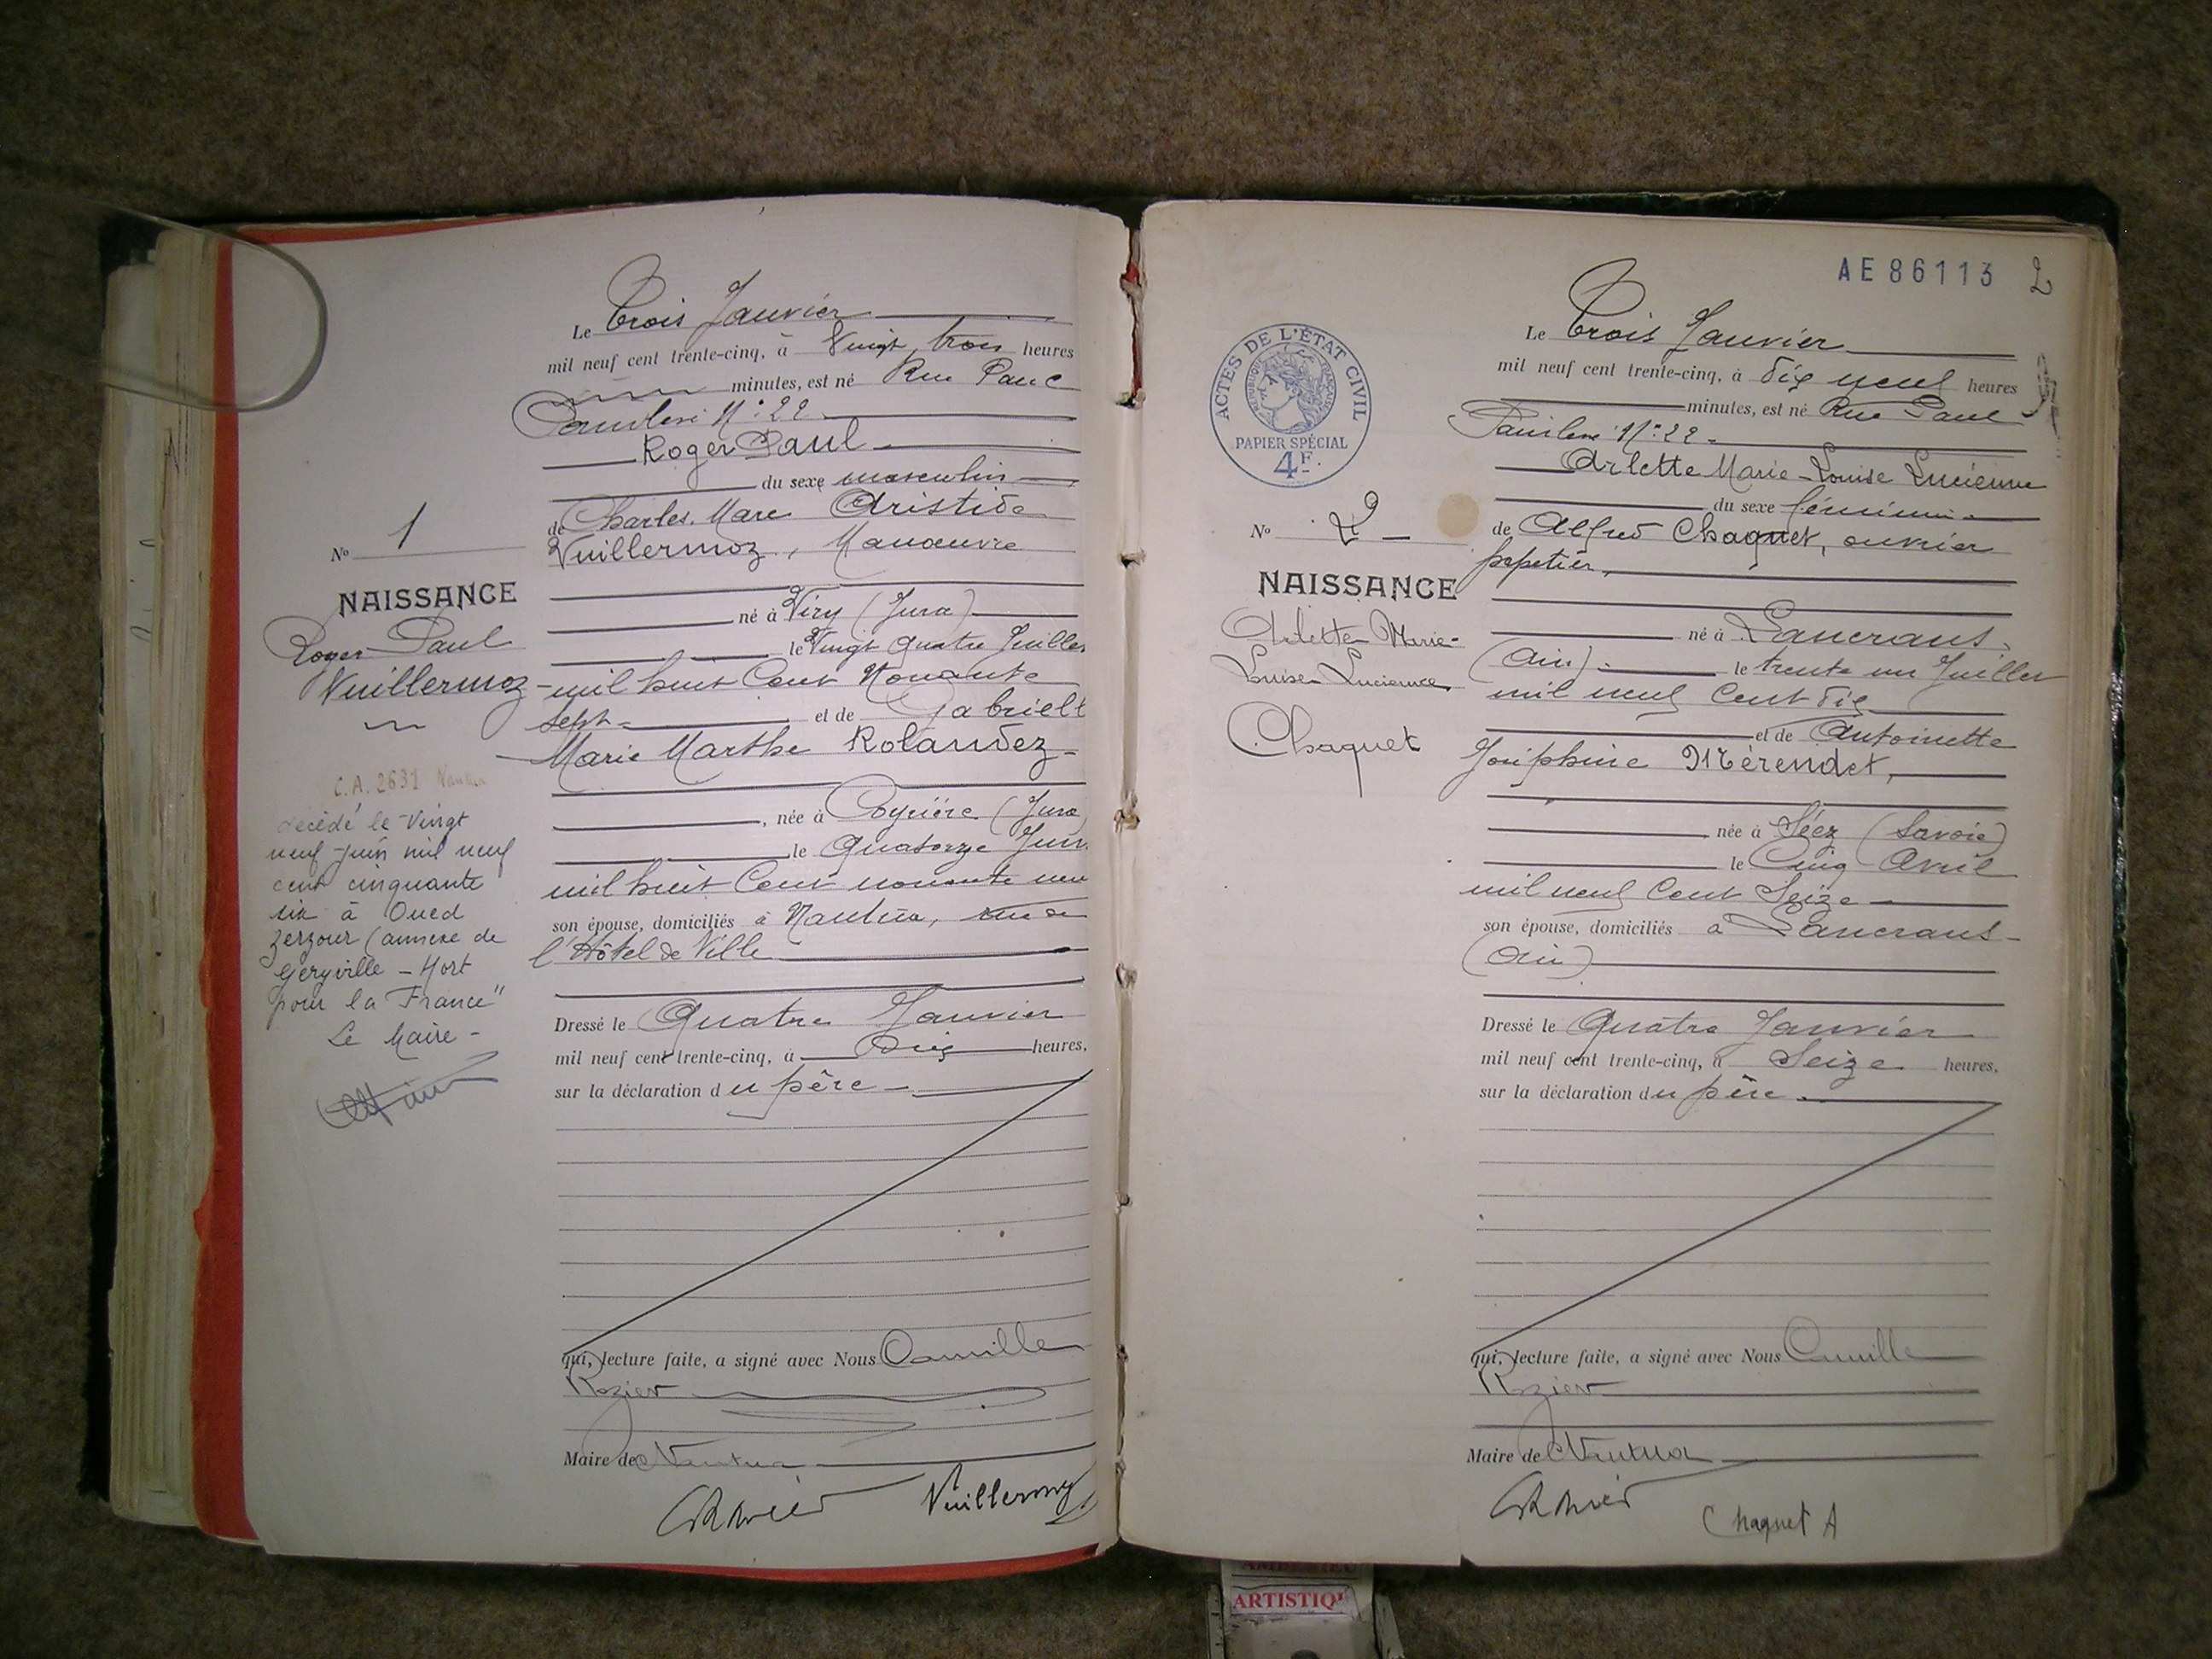 Le Trois Janvier
mil neuf cent trente-cinq, à Vingt trois heures
minutes, est né Rue Paul
Painlevé N° 22
Roger Paul
du sexe masculin
de Charles Marc Aristide
Vuillermoz, Manœuvre
né à Viry (Jura)
le Vingt quatre Juillet
mil huit Cent Nonante
sept et de Gabrielle
Marie Marthe Rolandez
, née à Coyrière (Jura)
le Quatorze Juin
mil huit Cent nonante neuf
son épouse, domiciliés à Nantua, rue de
l'Hôtel de Ville
Dressé le Quatre Janvier
mil neuf cent trente-cinq, à Dix heures,
sur la déclaration du père
qui, lecture faite, a signé avec Nous Camille
Rozier
Maire de Nantua
Vuillermoz
No 1
NAISSANCE
Roger Paul
Vuillermoz
C.A. 2631 Nantua
décédé le Vingt
neuf juin mil neuf
cent cinquante
six à Oued
Zerzour (annexe de
Geryville - Mort
pour la France"
Le Maire -
AE 86113 2
Le Trois Janvier
mil neuf cent trente-cinq, à dix neuf heures
minutes, est né Rue Paul
Painlevé N° 22
Arlette Marie-Louise Lucienne
du sexe féminin
de Alfred Chaquet, ouvrier
papetier,
né à Lancrans
(Ain) le trente un Juillet
mil neuf Cent dix
et de Antoinette
Joséphine Mérendet,
née à Séez (Savoie)
le Cinq Avril
mil neuf Cent Seize
son épouse, domiciliés à Lancrans
(Ain)
Dressé le Quatre Janvier
mil neuf cent trente-cinq, à Seize heures,
sur la déclaration du père
qui, lecture faite, a signé avec Nous Camille
Rozier
Maire de Nantua
Chaquet A
ACTES DE L'ÉTAT CIVIL
RÉPUBLIQUE FRANÇAISE
PAPIER SPÉCIAL
4F.
No 2
NAISSANCE
Arlette Marie-
Louise Lucienne
Chaquet
ARTISTIQU